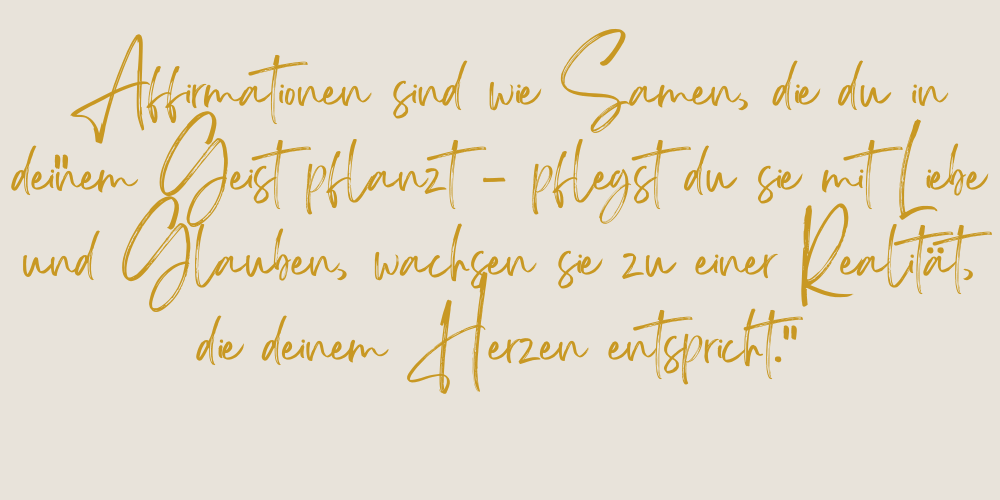 Affirmationen sind wie Samen, die du in
deinem Geist pflanzt – pflegst du sie mit Liebe
und Glauben, wachsen sie zu einer Realität,
die deinem Herzen entspricht."